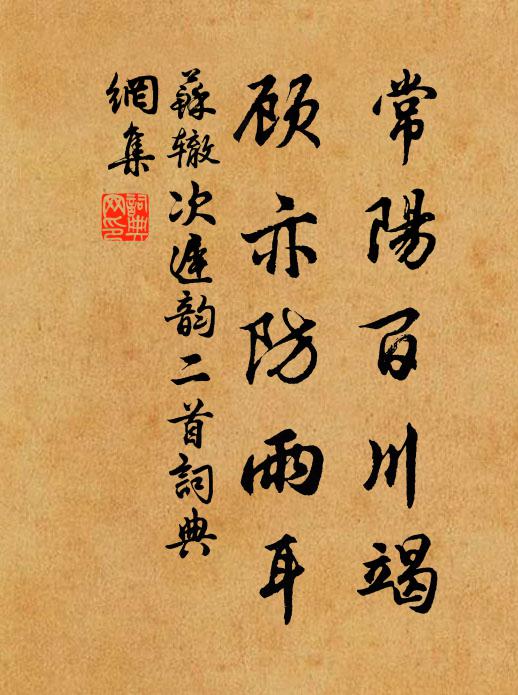 常陽百川竭
顾亦防雨耳
蘇辙次遲韵二首詞典
網集
詞典
网印